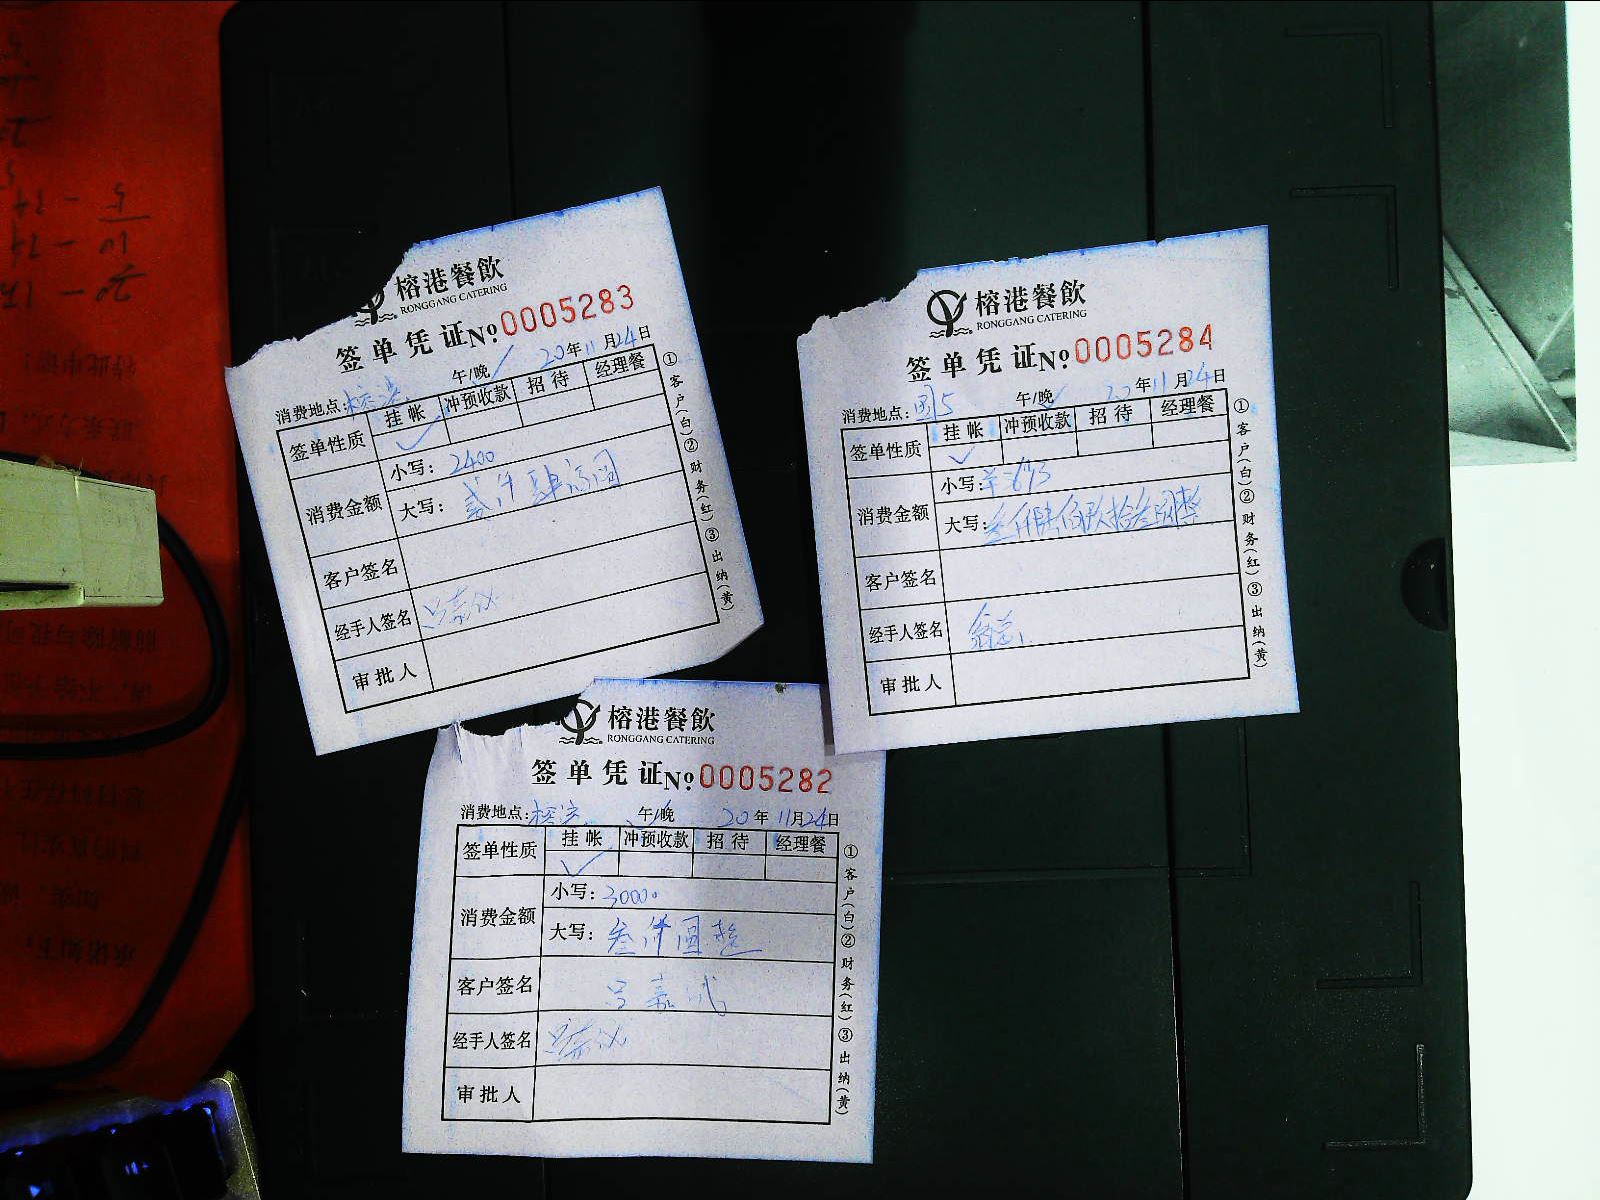 榕港餐飲
RONGGANG CATERING
签单凭证№0005283
消费地点:榕港 午/晚 20年11月24日
签单性质 挂帐 冲预收款 招待 经理餐
消费金额
小写: 2400
大写: 贰仟肆佰圆
客户签名
经手人签名
审批人
①客户(白)②财务(红)③出纳(黄)
榕港餐飲
RONGGANG CATERING
签单凭证№0005284
消费地点: 午/晚 年11月24日
签单性质 挂帐 冲预收款 招待 经理餐
消费金额
小写: 3693
大写: 叁仟陆佰玖拾叁圆整
客户签名
经手人签名
审批人
①客户(白)②财务(红)③出纳(黄)
榕港餐飲
RONGGANG CATERING
签单凭证№0005282
消费地点:榕港 午/晚 20年11月24日
签单性质 挂帐 冲预收款 招待 经理餐
消费金额
小写: 3000
大写: 叁仟圆整
客户签名
经手人签名
审批人
①客户(白)②财务(红)③出纳(黄)